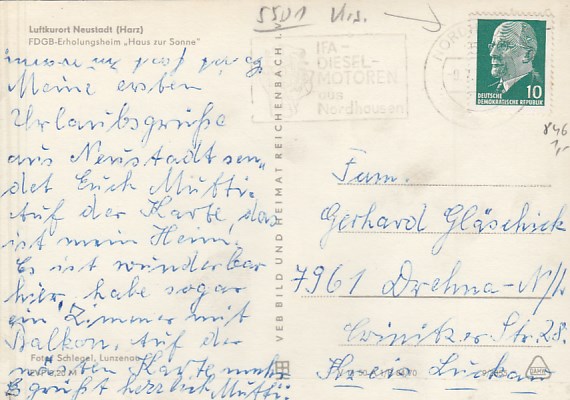 5501 Krs.
Luftkurort Neustadt (Harz)
FDGB-Erholungsheim „Haus zur Sonne"
Meine ersten
Urlaubsgrüße
aus Neustadt sen,
det Euch Mutti.
Auf der Karte, das
ist mein Heim.
Es ist wunderbar
hier, habe sogar
ein Zimmer mit
Balkon. Auf der
nächsten Karte mehr
Es grüßt herzlich Mutti.
Foto: Schlegel, Lunzenau
EVP 0,20 M
VEB BILD UND HEIMAT REICHENBACH I.
IFA-
DIESEL-
MOTOREN
aus
Nordhausen
10
DEUTSCHE
DEMOKRATISCHE REPUBLIK
846
1,-
Fam.
Gerhard Gläschick
7961 Drehna-N/L
Crinitzer Str. 28.
Kreis Luckau